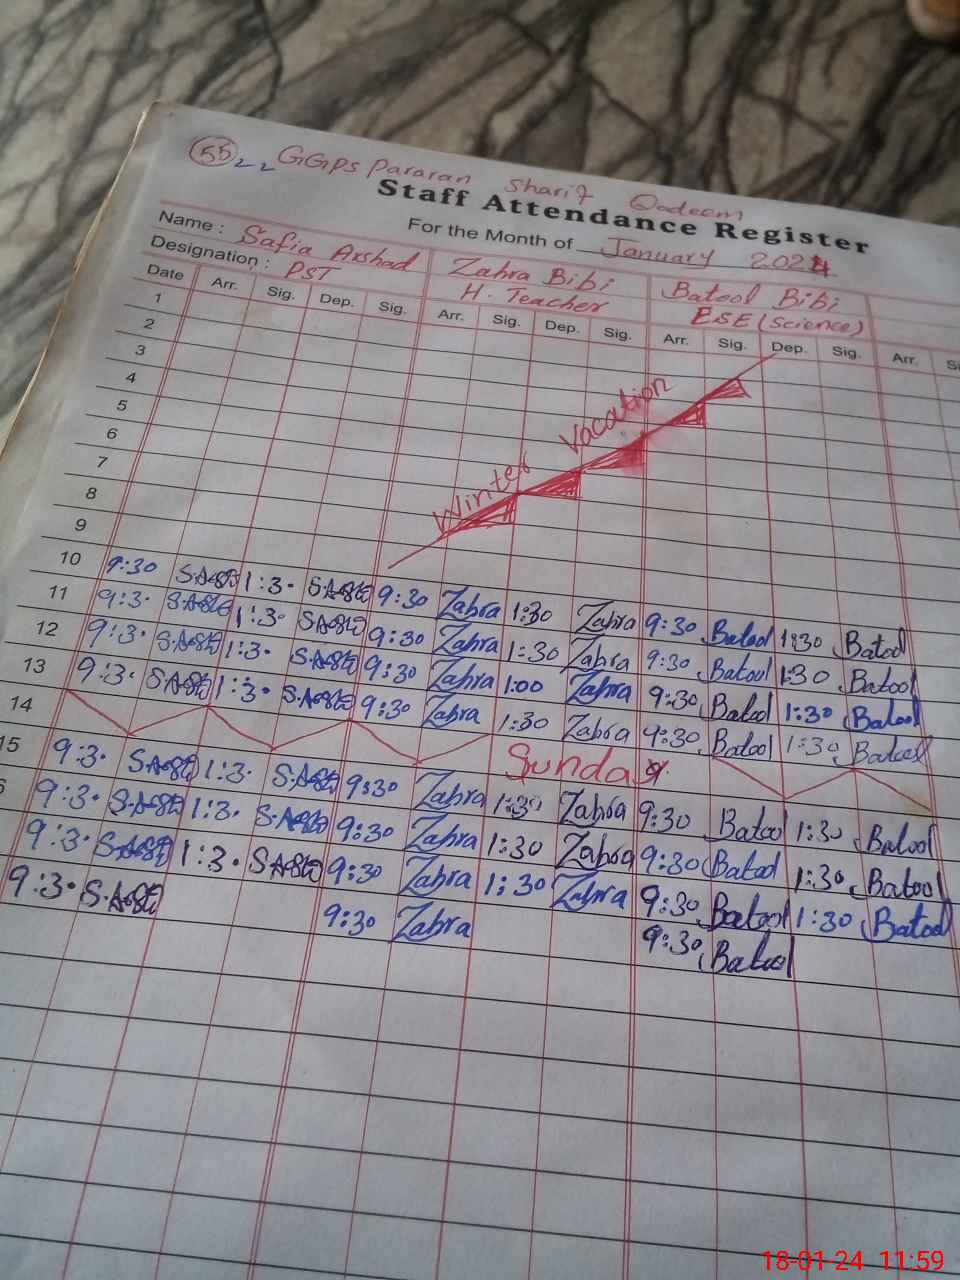 55 GGPS Pararan Sharif Qadeem
Staff Attendance Register
For the Month of January 2024
Name : Safia Arshad Zahra Bibi Batool Bibi
Designation : PST H. Teacher ESE (Science)
Date Arr. Sig. Dep. Sig. Arr. Sig. Dep. Sig. Arr. Sig. Dep. Sig. Arr.
1
2
3
4
5
6
7
8
9
Winter Vacation
10 9:30 1:30 9:30 Zahra 1:30 Zahra 9:30 Batool 1:30 Batool
11 9:30 1:30 9:30 Zahra 1:30 Zahra 9:30 Batool 1:30 Batool
12 9:30 1:30 9:30 Zahra 1:00 Zahra 9:30 Batool 1:30 Batool
13 9:30 1:30 9:30 Zahra 1:30 Zahra 9:30 Batool 1:30 Batool
14 Sunday
15 9:30 1:30 9:30 Zahra 1:30 Zahra 9:30 Batool 1:30 Batool
9:30 1:30 9:30 Zahra 1:30 Zahra 9:30 Batool 1:30 Batool
9:30 1:30 9:30 Zahra 1:30 Zahra 9:30 Batool 1:30 Batool
9:30 9:30 Zahra 9:30 Batool
18-01-24 11:59